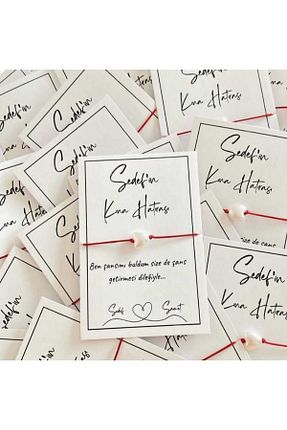 Sedef'in
Kına Hatırası
Ben şansımı buldum size de şans
getirmesi dileğiyle...
Sedef Samet
Sedef'in
Kına Hatırası
Sedef'in
Kına Hatırası
size de şans